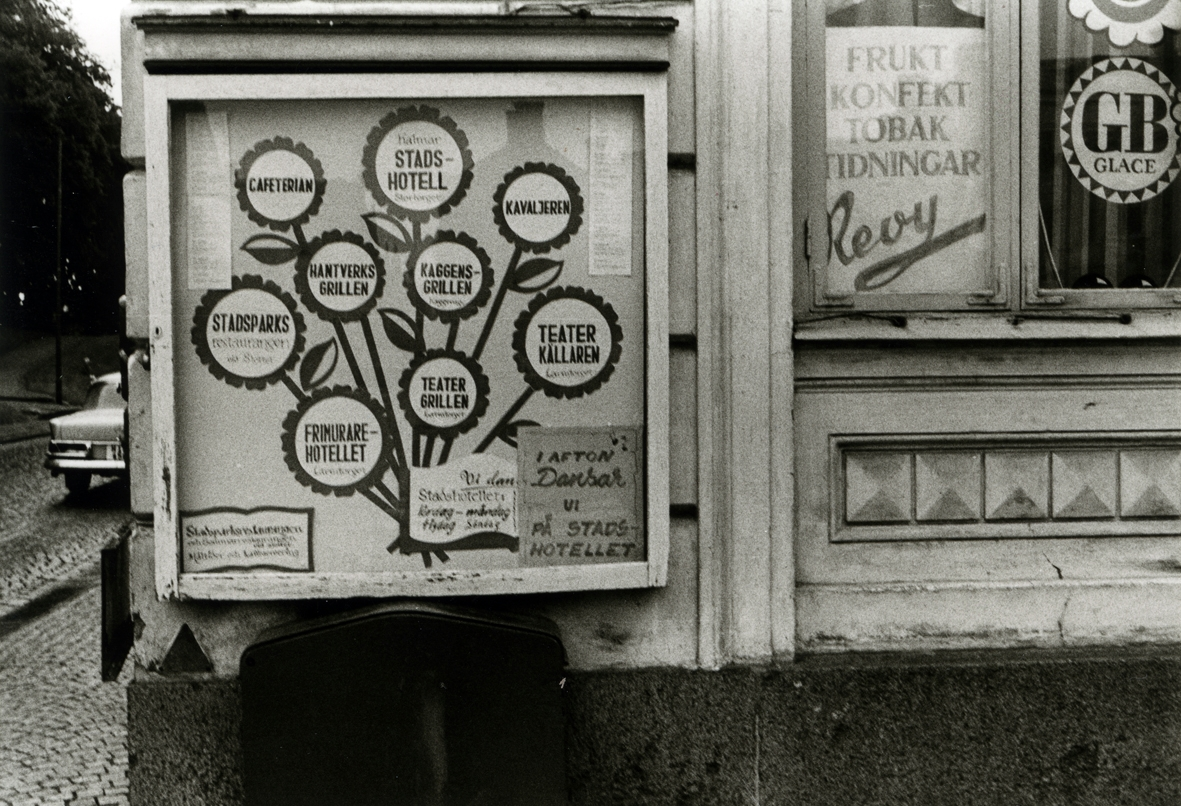 Kalmar
STADS-
HOTELL
Stortorget
CAFETERIAN
KAVALJEREN
HANTVERKS
GRILLEN
KAGGENS-
GRILLEN
STADSPARKS
restaurangen
TEATER
KÄLLAREN
Larmtorget
TEATER
GRILLEN
Larmtorget
FRIMURARE-
HOTELLET
Larmtorget
Vi dan
Stadshotellet:
lördag - måndag
Söndag
I AFTON
Dansar
VI
PÅ STADS-
HOTELLET
Stadsparksrestaurangen
FRUKT
KONFEKT
TOBAK
TIDNINGAR
Revy
GB
GLACE